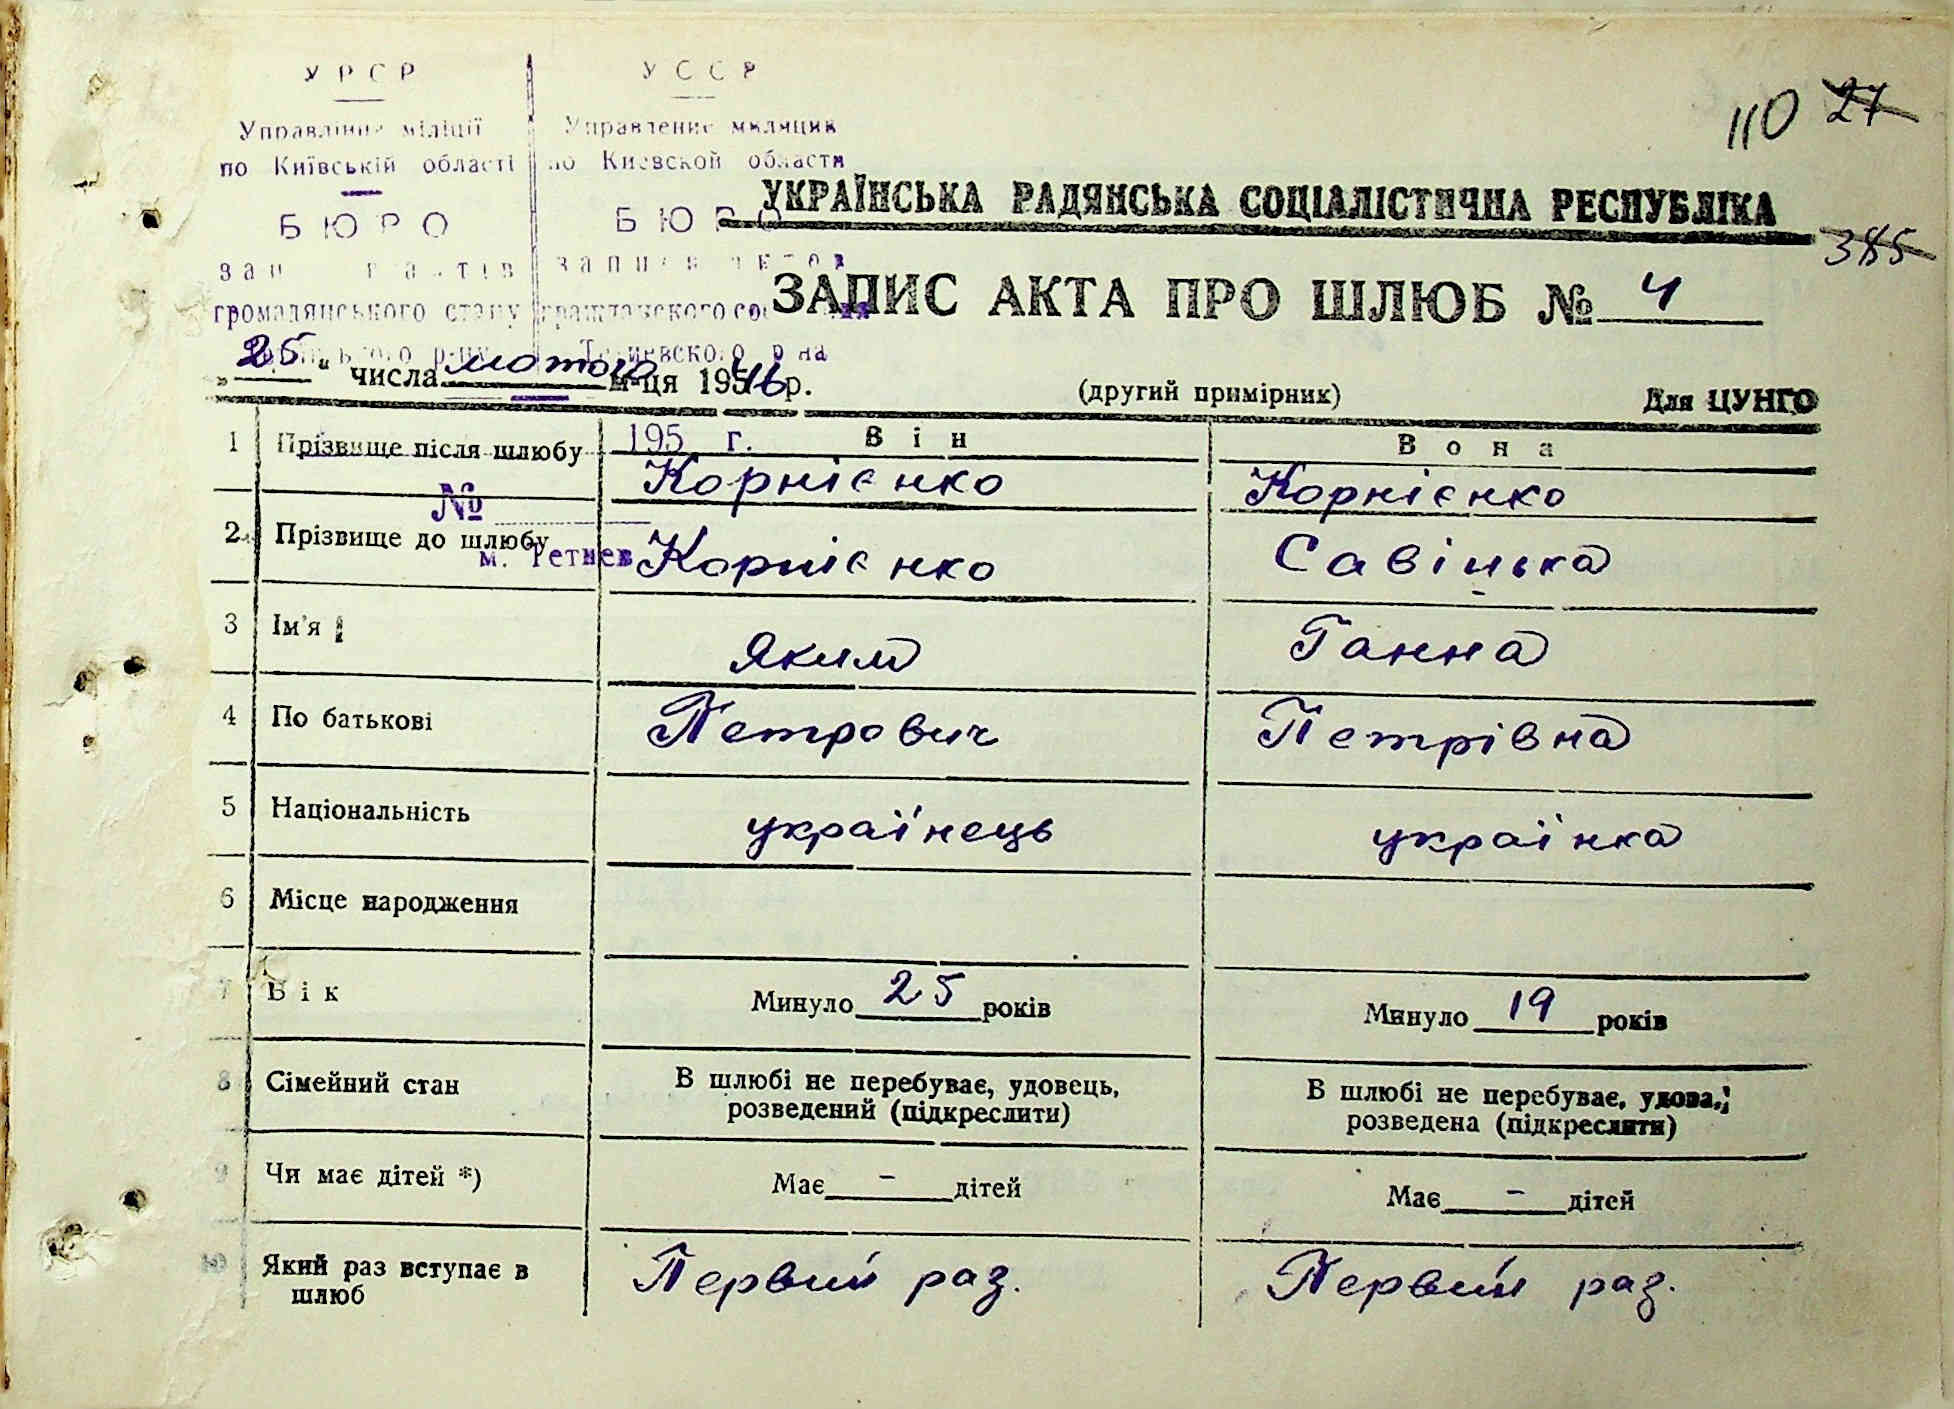 УРСР
Управління міліції
по Київській області
БЮРО
громадянського стану
УССР
Управление милиции
по Киевской области
БЮРО
записи актов
гражданского
Тетиевского р-на
110 27
385
УКРАЇНСЬКА РАДЯНСЬКА СОЦІАЛІСТИЧНА РЕСПУБЛІКА
ЗАПИС АКТА ПРО ШЛЮБ № 4
„25" числа лютого м-ця 1946 р. (другий примірник) Для ЦУНГО
195 г.
№
м. Тетиев
Він Вона
1 Прізвище після шлюбу Корнієнко Корнієнко
2 Прізвище до шлюбу Корнієнко
3 Ім'я Яким Ганна
4 По батькові Петрович Петрівна
5 Національність українець українка
6 Місце народження
7 Вік Минуло 25 років Минуло 19 років
8 Сімейний стан В шлюбі не перебуває, удовець, В шлюбі не перебуває, удова,
розведений (підкреслити) розведена (підкреслити)
9 Чи має дітей *) Має - дітей Має - дітей
Який раз вступає в Первий раз. Первий раз.
шлюб